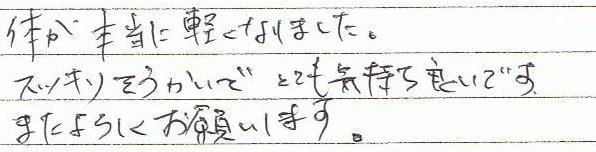 体が本当に軽くなりました。
スッキリそうかいで とても気持ち良いです
またよろしくお願いします。